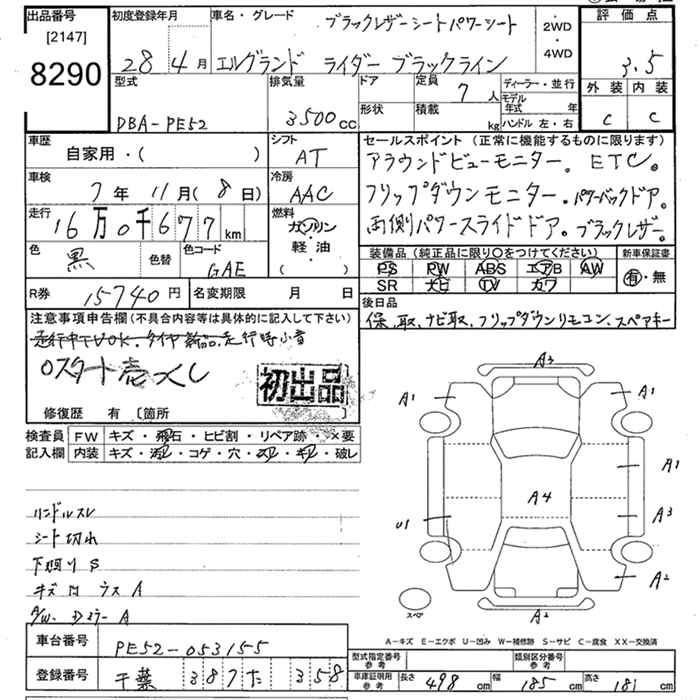 出品番号 初度登録年月 車名・グレード ブラックレザーシートパワーシート 2WD・4WD 評価点
[2147]
8290 28 4月 エルグランド ライダー ブラックライン 3.5
型式 排気量 ドア 定員 7人 ディーラー・並行 外装 内装
形状 積載 kg モデル年式 年
DBA-PE52 3500cc ハンドル 左・右 C C
車歴 自家用・( ) シフト AT
セールスポイント(正常に機能するものに限ります)
アラウンドビューモニター。ETC。
車検 7年11月(8日) 冷房 AAC
フリップダウンモニター。パワーバックドア。
走行 16万0千677km 燃料 ガソリン・軽油・( )
両側パワースライドドア。ブラックレザー。
色 黒 色替 色コード GAE
装備品(純正品に限り○をつけてください) 新車保証書
PS PW ABS エアB AW 有・無
SR ナビ TV カワ
R券 15740円 名変期限 月 日
後日品
保、取、ナビ取、フリップダウンリモコン、スペアキー
注意事項申告欄(不具合内容等は具体的に記入して下さい)
走行中TVOK、タイヤ新品、走行時小音
0スタート売入し
初出品
修復歴 有 [箇所
検査員記入欄 FW キズ・飛石・ヒビ割・リペア跡・×要
内装 キズ・汚レ・コゲ・穴・スレ・キレ・破レ
ハンドルスレ
シート切れ
下回りS
キズ凹 ラスA
A/W. Dミラー A
A3
A1 A1
A1
A4
U1 A3
A2
スペア
A2
A-キズ E-エクボ U-凹み W-補修跡 S-サビ C-腐食 XX-交換済
車台番号 PE52-053155
型式指定番号 参考 類別区分番号 参考
登録番号 千葉 387 た 358
車庫証明用 参考 長さ 498cm 幅 185cm 高さ 181cm